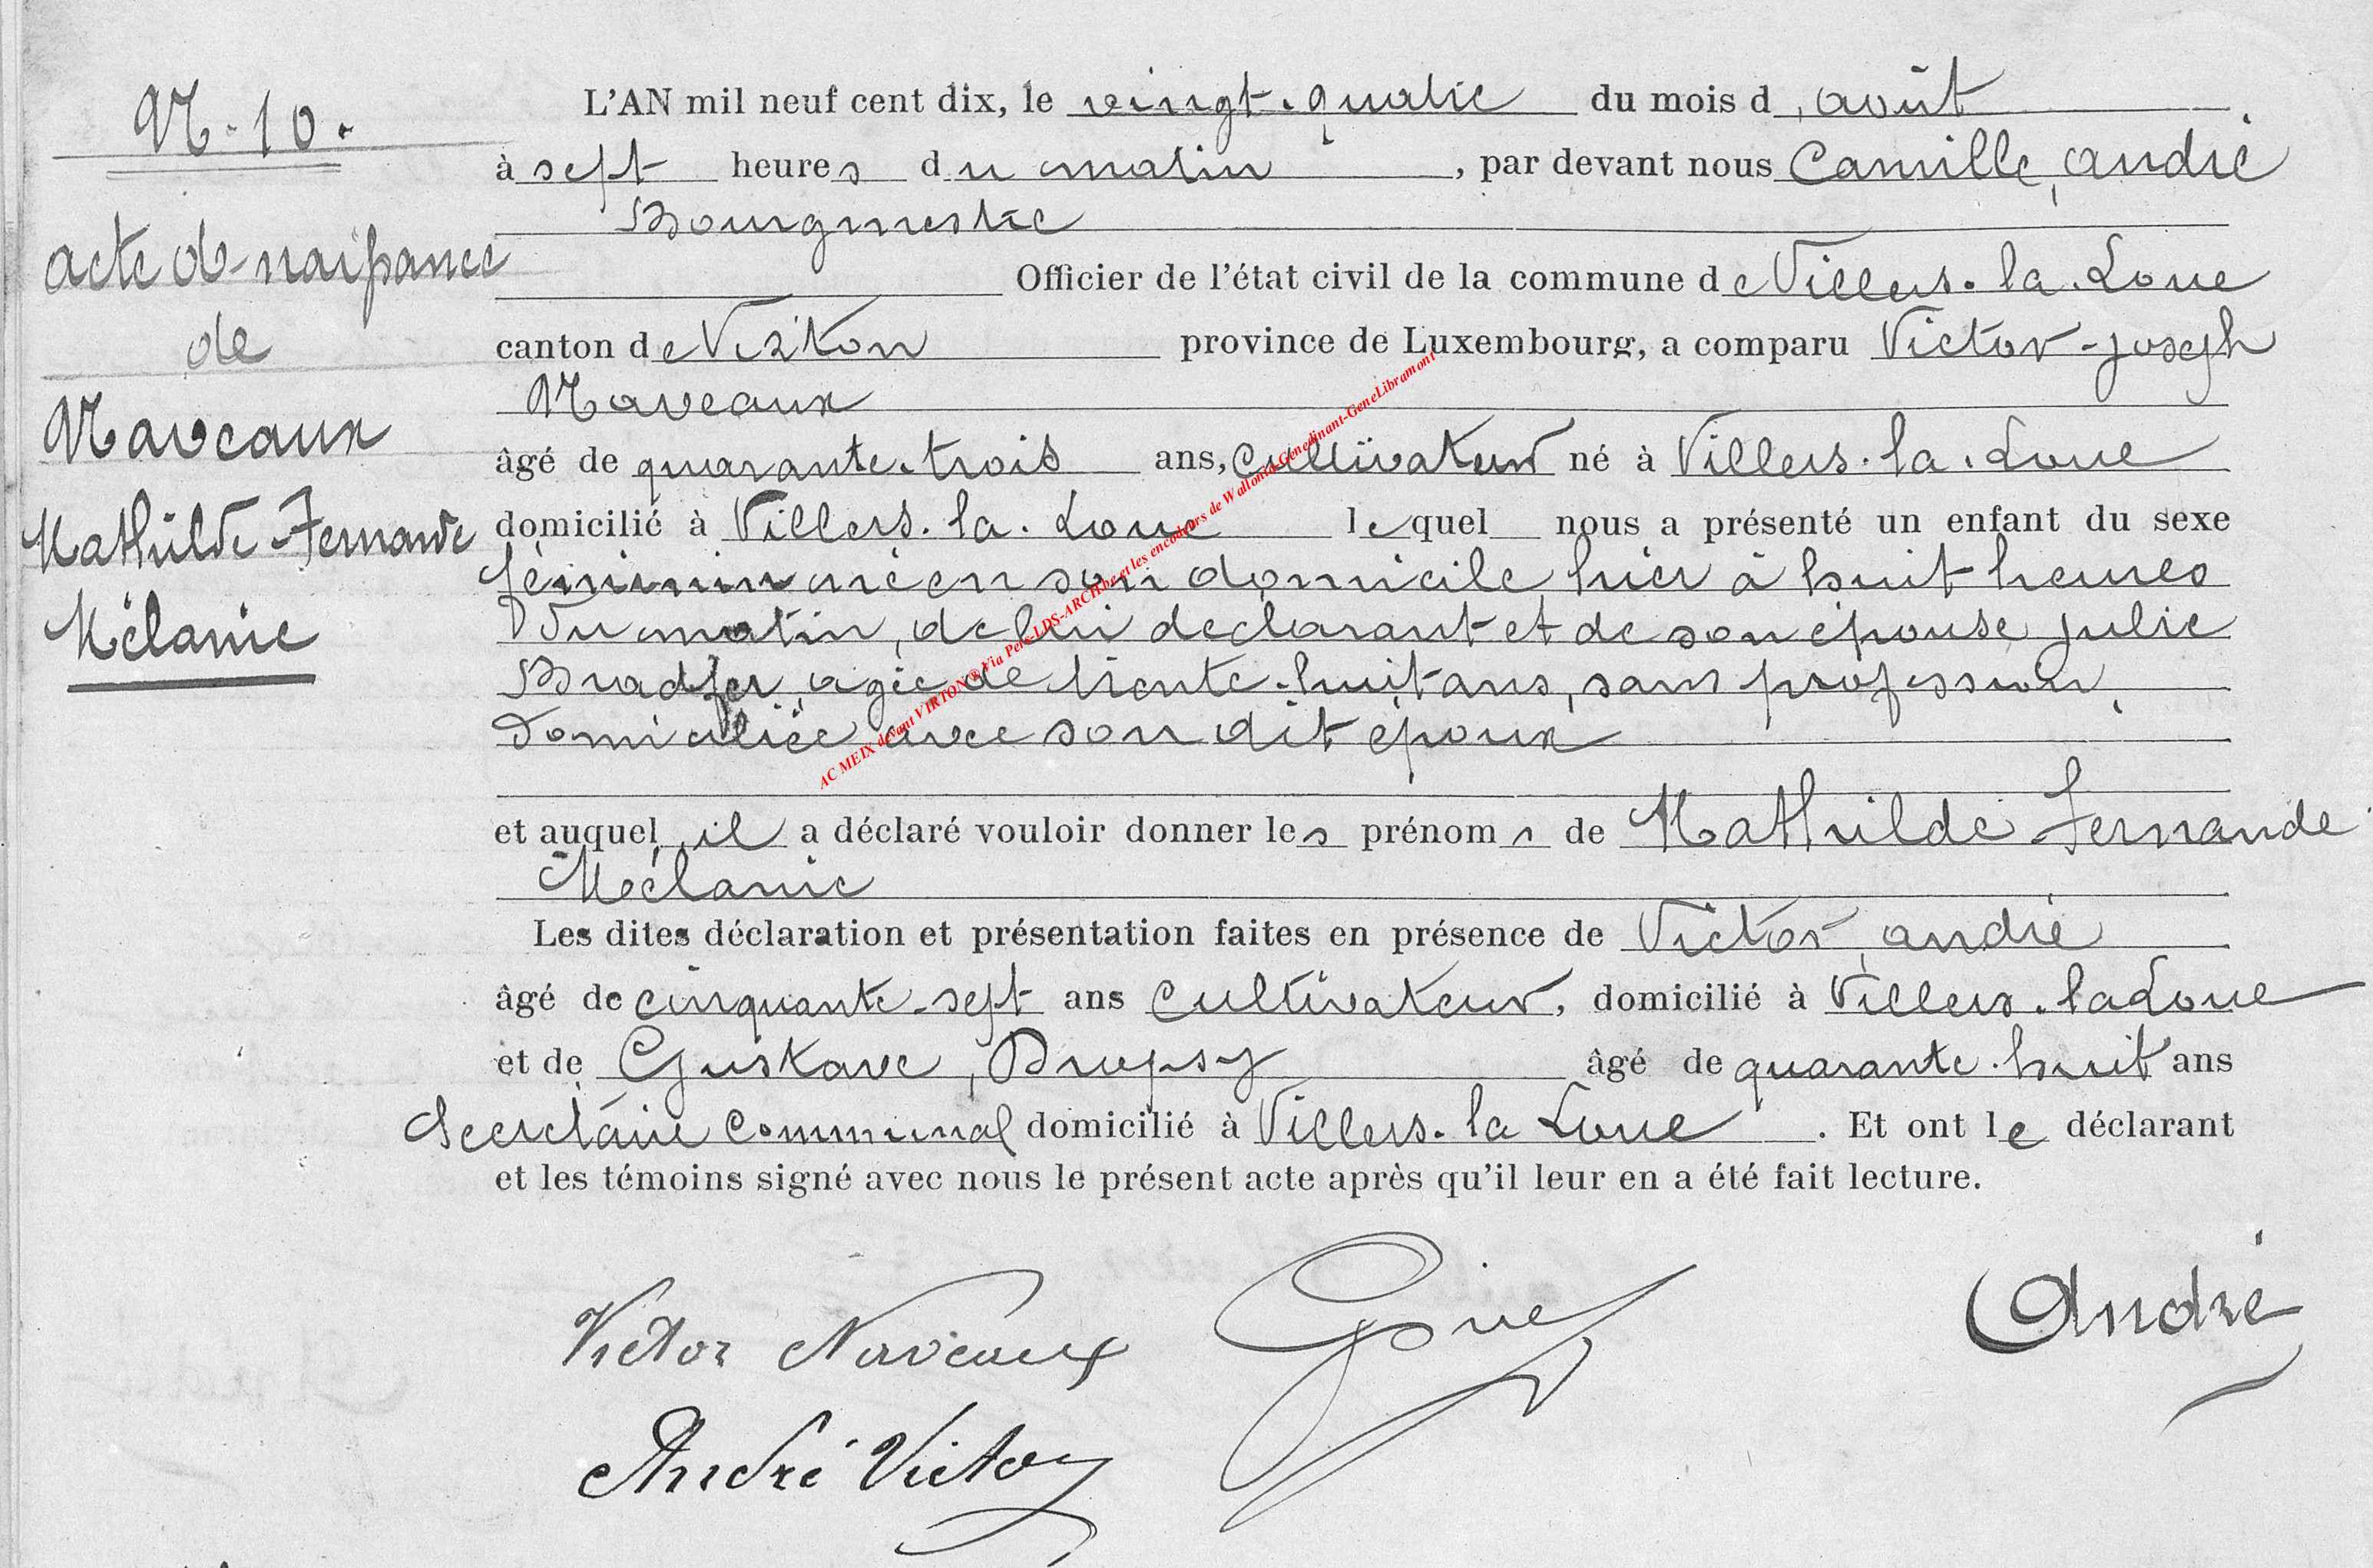 N. 10.
acte de naissance
de
Naveaux
Mathilde-Fernande
Mélanie
L'AN mil neuf cent dix, le vingt-quatre du mois d'août
à sept heures du matin, par devant nous Camille, andré
Bourgmestre
Officier de l'état civil de la commune de Villers-la-Loue
canton de Virton province de Luxembourg, a comparu Victor-joseph
Naveaux
âgé de quarante-trois ans, cultivateur né à Villers-la-Loue
domicilié à Villers-la-Loue lequel nous a présenté un enfant du sexe
féminin né en son domicile, hier à huit heures
du matin, de lui déclarant et de son épouse julie
Bradfer, agée de trente-huit ans, sans profession,
domiciliée avec son dit époux
et auquel il a déclaré vouloir donner les prénoms de Mathilde-Fernande
Mélanie
Les dites déclaration et présentation faites en présence de Victor, andré
âgé de cinquante-sept ans cultivateur, domicilié à Villers-la Loue
et de Gustave, Drupsy âgé de quarante-huit ans
Secrétaire communal domicilié à Villers-la Loue. Et ont le déclarant
et les témoins signé avec nous le présent acte après qu'il leur en a été fait lecture.
Victor Naveaux
André
André Victor
AC MEIX devant VIRTON ® Via Pers-LDS-ARCH.be et les encodeurs de Wallonia-Genedinant-GeneLibramont